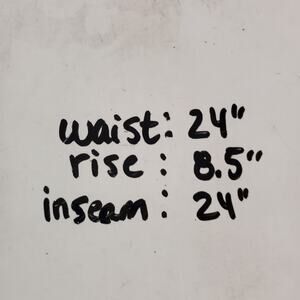 waist: 24"
rise: 8.5"
inseam: 24"